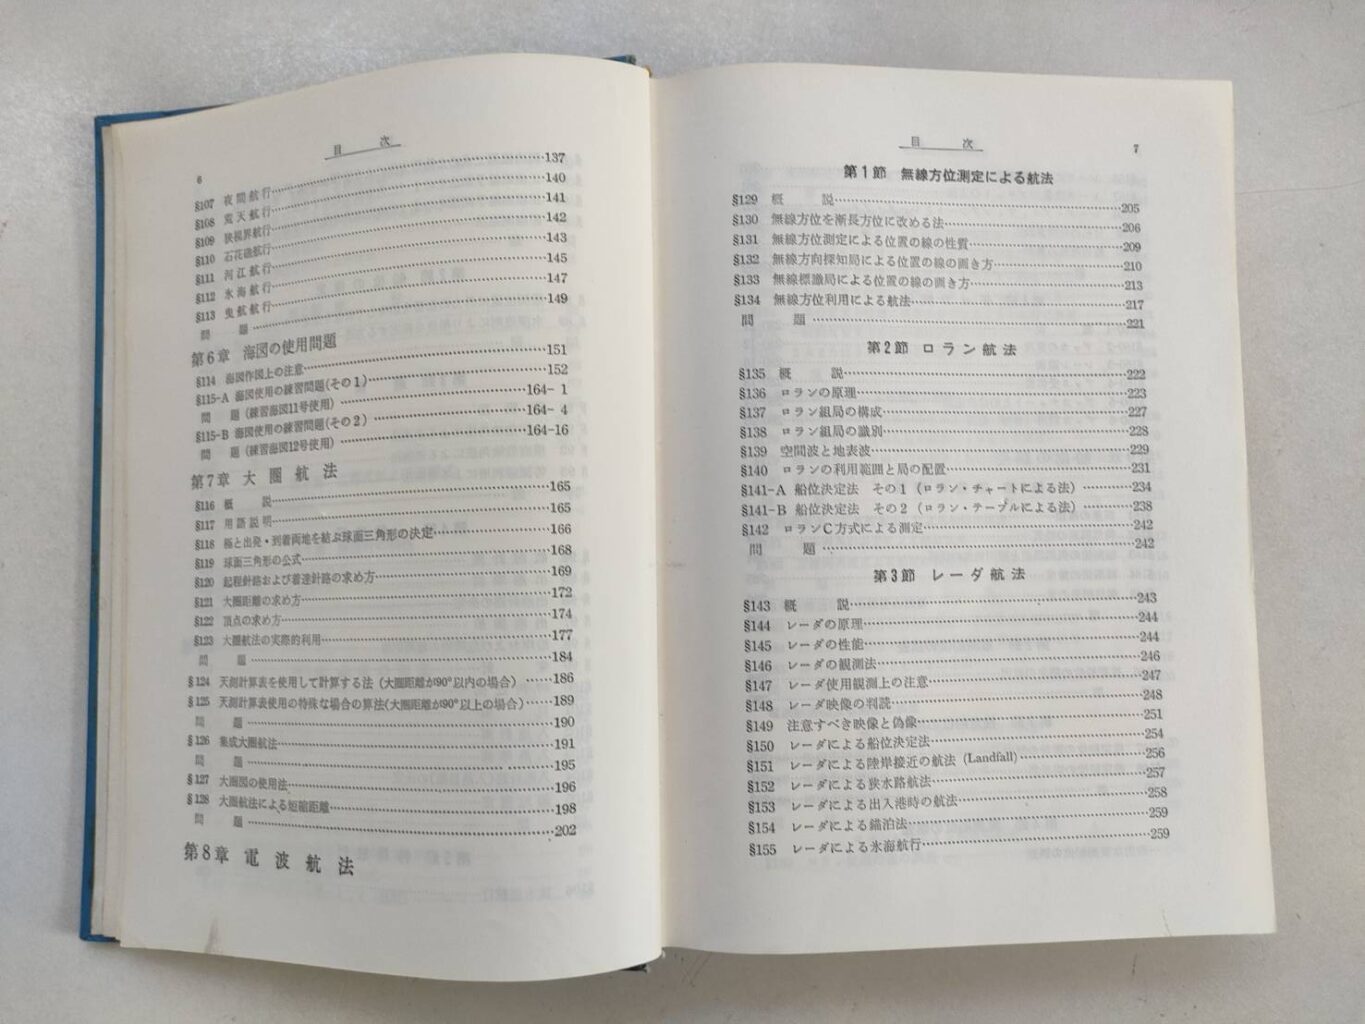 目 次
6
§107 夜間航行……137
§108 荒天航行……140
§109 狭視界航行……141
§110 石花礁航行……142
§111 河江航行……143
§112 氷海航行……145
§113 曳航航行……147
問 題……149
第6章 海図の使用問題
§114 海図作図上の注意……151
§115-A 海図使用の練習問題(その1)……152
問 題(練習海図11号使用)……164- 1
§115-B 海図使用の練習問題(その2)……164- 4
問 題(練習海図12号使用)……164-16
第7章 大圏航法
§116 概 説……165
§117 用語説明……165
§118 極と出発・到着両地を結ぶ球面三角形の決定……166
§119 球面三角形の公式……168
§120 起程針路および着達針路の求め方……169
§121 大圏距離の求め方……172
§122 頂点の求め方……174
§123 大圏航法の実際的利用……177
問 題……184
§124 天測計算表を使用して計算する法(大圏距離が90°以内の場合)……186
§125 天測計算表使用の特殊な場合の算法(大圏距離が90°以上の場合)……189
問 題……190
§126 集成大圏航法……191
問 題……195
§127 大圏図の使用法……196
§128 大圏航法による短縮距離……198
問 題……202
第8章 電波航法
目 次
7
第1節 無線方位測定による航法
§129 概 説……205
§130 無線方位を漸長方位に改める法……206
§131 無線方位測定による位置の線の性質……209
§132 無線方向探知局による位置の線の画き方……210
§133 無線標識局による位置の線の画き方……213
§134 無線方位利用による航法……217
問 題……221
第2節 ロラン航法
§135 概 説……222
§136 ロランの原理……223
§137 ロラン組局の構成……227
§138 ロラン組局の識別……228
§139 空間波と地表波……229
§140 ロランの利用範囲と局の配置……231
§141-A 船位決定法 その1(ロラン・チャートによる法)……234
§141-B 船位決定法 その2(ロラン・テーブルによる法)……238
§142 ロランC方式による測定……242
問 題……242
第3節 レーダ航法
§143 概 説……243
§144 レーダの原理……244
§145 レーダの性能……244
§146 レーダの観測法……246
§147 レーダ使用観測上の注意……247
§148 レーダ映像の判読……248
§149 注意すべき映像と偽像……251
§150 レーダによる船位決定法……254
§151 レーダによる陸岸接近の航法 (Landfall)……256
§152 レーダによる狭水路航法……257
§153 レーダによる出入港時の航法……258
§154 レーダによる錨泊法……259
§155 レーダによる氷海航行……259